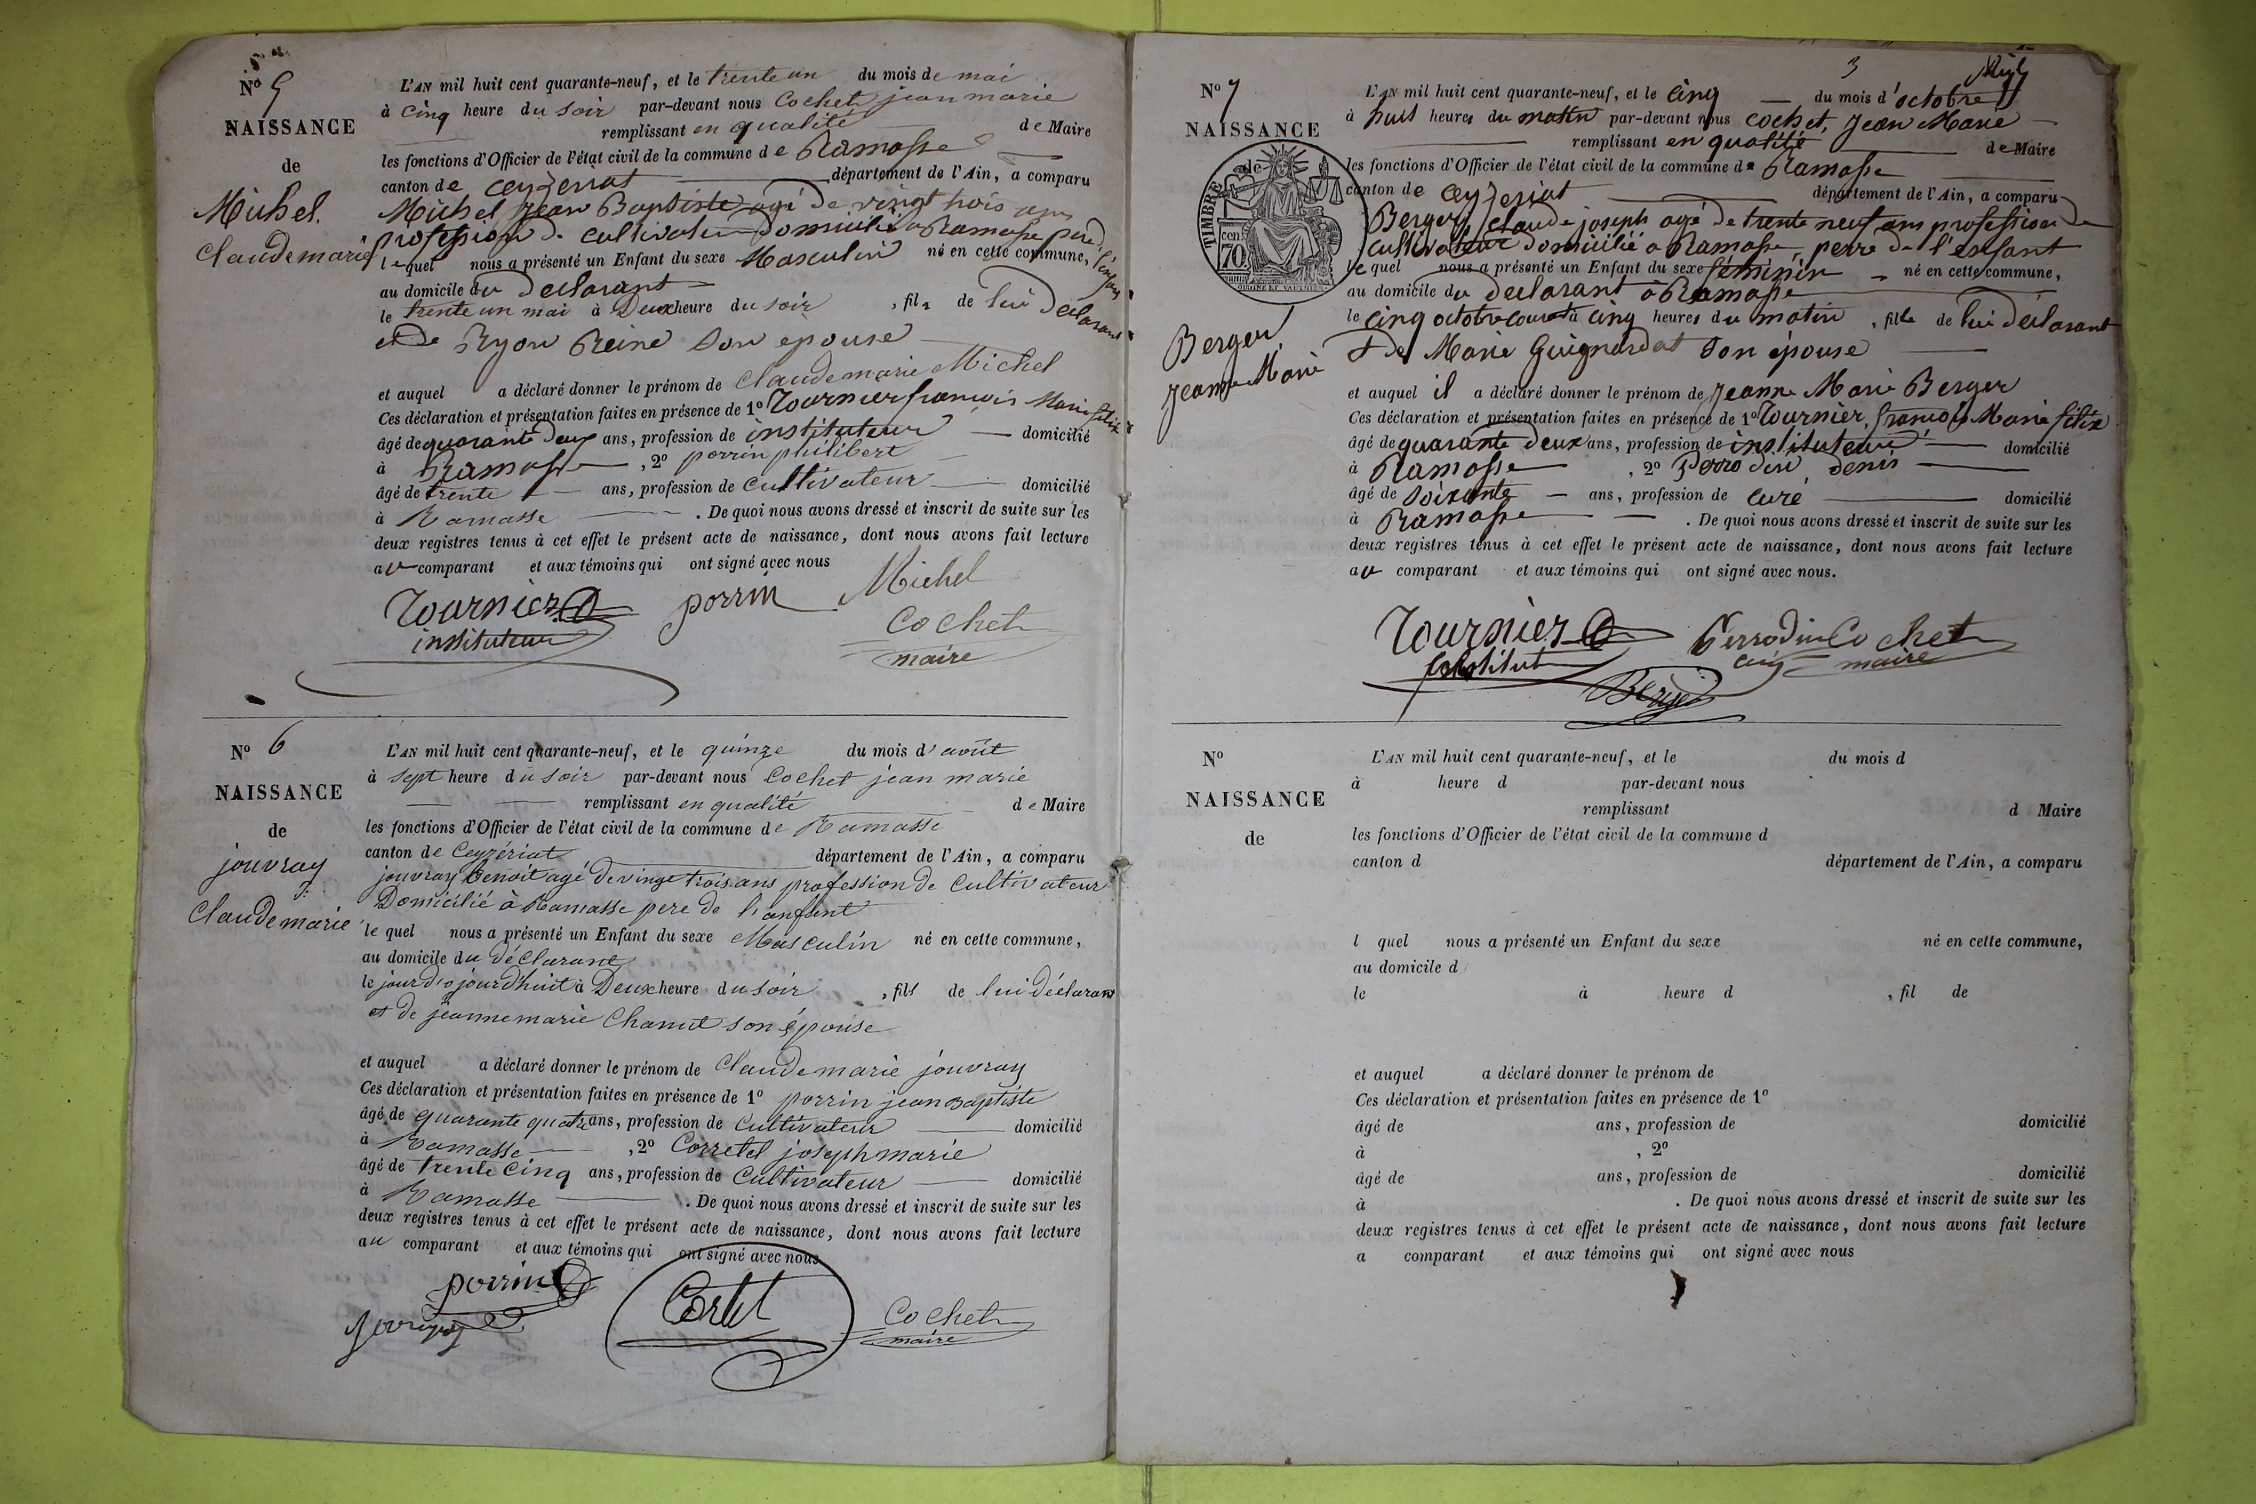 Nº 5
NAISSANCE
de
Michel.
Claude marie
L'AN mil huit cent quarante-neuf, et le trente un du mois de mai
à cinq heure du soir par-devant nous Cochet jean marie
remplissant en qualité de Maire
les fonctions d'Officier de l'état civil de la commune de Ramasse
canton de Ceyzeriat département de l'Ain, a comparu
Michel Jean Baptiste agé de vingt trois ans
profession de cultivateur Domicilié a Ramasse pere de l'enfant
le quel nous a présenté un Enfant du sexe Masculin né en cette commune,
au domicile du Declarant
le trente un mai à Deux heure du soir , fils de lui Declarant
et de Ryon Reine son epouse
et auquel a déclaré donner le prénom de Claude marie Michel
Ces déclaration et présentation faites en présence de 1º Tournier françois Marie felix
âgé de quarante deux ans, profession de instituteur domicilié
à Ramasse , 2º porrin philibert
âgé de trente ans, profession de cultivateur domicilié
à Ramasse . De quoi nous avons dressé et inscrit de suite sur les
deux registres tenus à cet effet le présent acte de naissance, dont nous avons fait lecture
au comparant et aux témoins qui ont signé avec nous
Tournier porrin Michel
instituteur Cochet
maire
Nº 6
NAISSANCE
de
jouvray
Claude marie
L'AN mil huit cent quarante-neuf, et le quinze du mois d'août
à sept heure du soir par-devant nous Cochet jean marie
remplissant en qualité de Maire
les fonctions d'Officier de l'état civil de la commune de Ramasse
canton de Ceyzériat département de l'Ain, a comparu
jouvray Benoit agé de vingt trois ans profession de Cultivateur
Domicilié à Ramasse pere de l'anfent
le quel nous a présenté un Enfant du sexe Masculin né en cette commune,
au domicile du Déclarant
le jourd'ojourdhuit à Deux heure du soir , fils de lui Déclarant
et de jeanne marie Chanut son épouse
et auquel a déclaré donner le prénom de Claude marie jouvray
Ces déclaration et présentation faites en présence de 1º porrin jean Baptiste
âgé de quarante quatre ans, profession de Cultivateur domicilié
à Ramasse , 2º Corretel joseph marie
âgé de trente cinq ans, profession de Cultivateur domicilié
à Ramasse . De quoi nous avons dressé et inscrit de suite sur les
deux registres tenus à cet effet le présent acte de naissance, dont nous avons fait lecture
au comparant et aux témoins qui ont signé avec nous
porrin Cochet
maire
3
Nº 7
NAISSANCE
de
TIMBRE
70
Berger,
Jeanne Marie
L'AN mil huit cent quarante-neuf, et le cinq du mois d'octobre
à huit heures du matin par-devant nous Cochet, Jean Marie
remplissant en qualité de Maire
les fonctions d'Officier de l'état civil de la commune de Ramasse
canton de Ceyzeriat département de l'Ain, a comparu
Berger, Claude joseph agé de trente neuf ans profession de
cultivateur Domicilié a Ramasse, perre de l'enfant
le quel nous a présenté un Enfant du sexe féminin né en cette commune,
au domicile du declarant à Ramasse
le cinq octobre courat à cinq heures du matin , fille de lui déclarant
& de Marie Guignardat son épouse
et auquel il a déclaré donner le prénom de Jeanne Marie Berger
Ces déclaration et présentation faites en présence de 1º Tournier, françois Marie félix
âgé de quarante deux ans, profession de instituteur domicilié
à Ramasse , 2º Perrodin denis
âgé de soixante ans, profession de curé domicilié
à Ramasse . De quoi nous avons dressé et inscrit de suite sur les
deux registres tenus à cet effet le présent acte de naissance, dont nous avons fait lecture
au comparant et aux témoins qui ont signé avec nous.
Tournier Perrodin Cochet
curé maire
Berger
Nº
NAISSANCE
de
L'AN mil huit cent quarante-neuf, et le du mois d
à heure d par-devant nous
remplissant d Maire
les fonctions d'Officier de l'état civil de la commune d
canton d département de l'Ain, a comparu
l quel nous a présenté un Enfant du sexe né en cette commune,
au domicile d
le à heure d , fil de
et auquel a déclaré donner le prénom de
Ces déclaration et présentation faites en présence de 1º
âgé de ans, profession de domicilié
à , 2º
âgé de ans, profession de domicilié
à . De quoi nous avons dressé et inscrit de suite sur les
deux registres tenus à cet effet le présent acte de naissance, dont nous avons fait lecture
a comparant et aux témoins qui ont signé avec nous